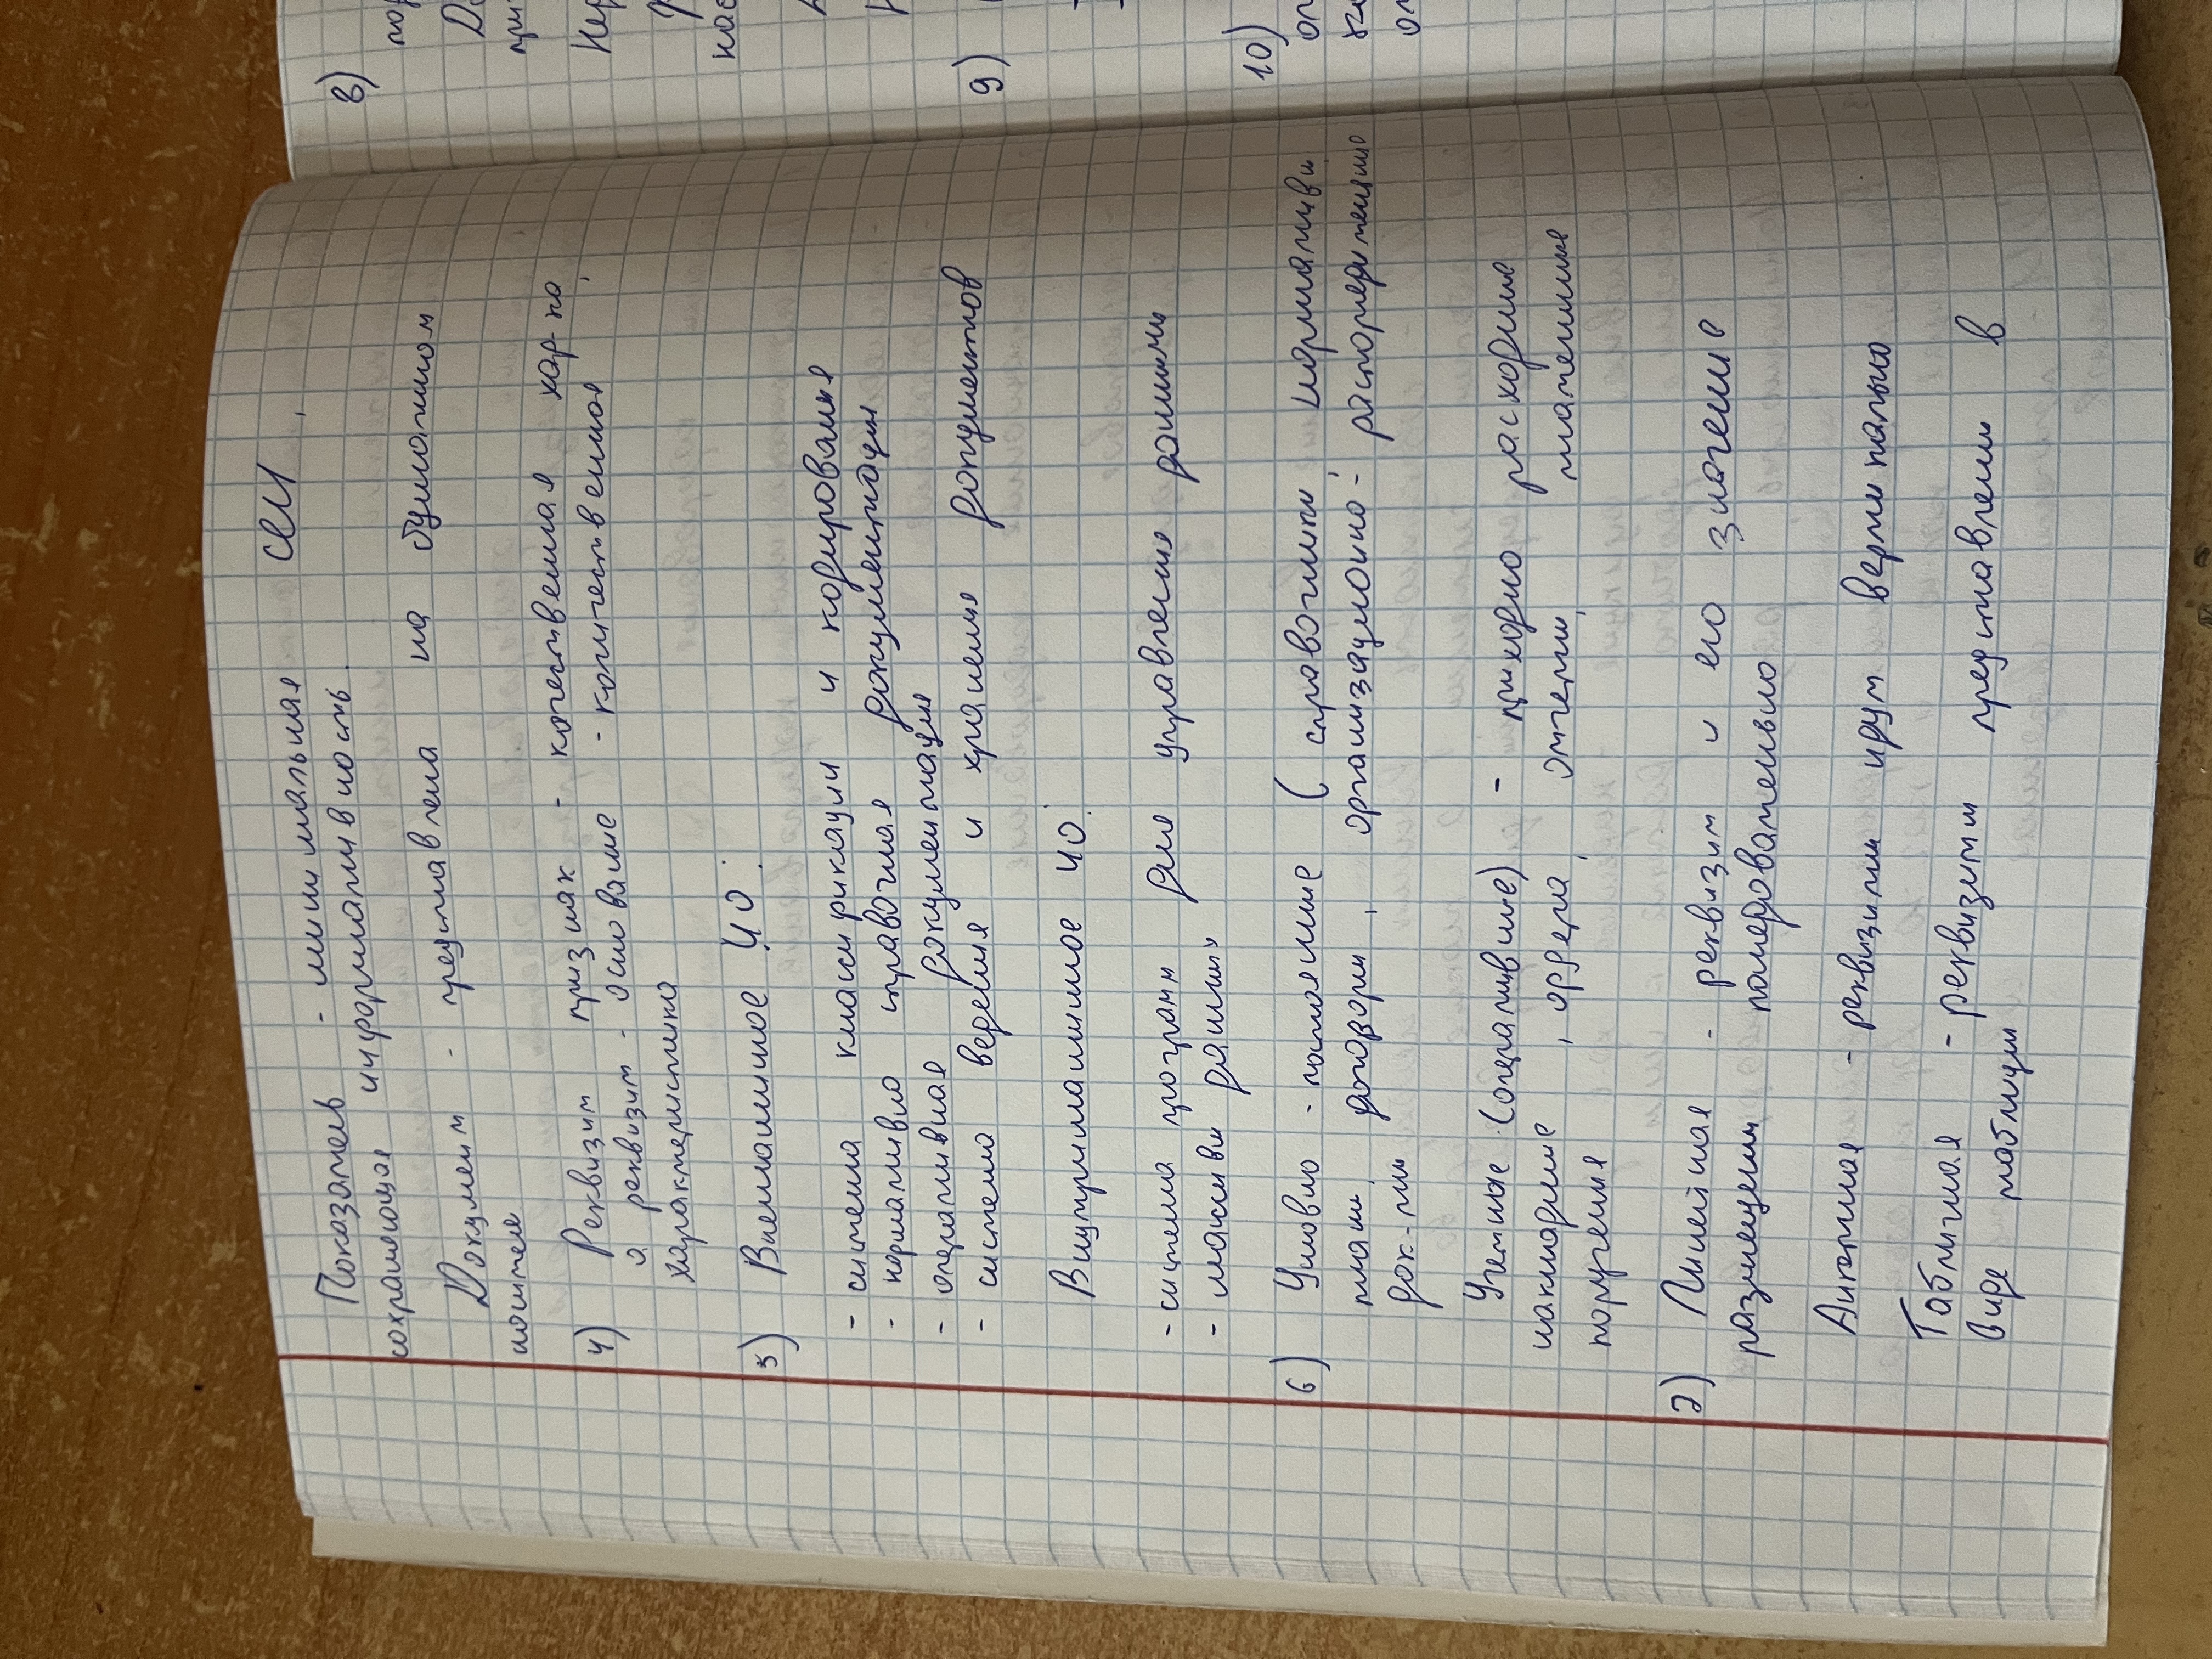 Показатель - минимальная СЕИ,
сохраняющая информативность.
Документ - представлена на бумажном
носителе
4) Реквизит признак - качественная хар-ка,
а реквизит - основание - количественная
характеристика
5) Внемашинное ИО:
- система классификации и кодирования
- нормативно справочная документация
- оперативная документация
- система ведения и хранения документов
Внутримашинное ИО:
- система программ для управления данными
- массивы данных
6) Условно - постоянные ( справочники, нормативы,
планы, договоры, организационно - распорядительные
док-ты
Учетные (оперативные) - приходно расходные
накладные, ордера, отчеты, платежные
поручения
7) Линейная - реквизит и его значение
размещены последовательно
Анкетная - реквизиты идут вертикально
Табличная - реквизиты представлены в
виде таблицы
8)
9)
10)